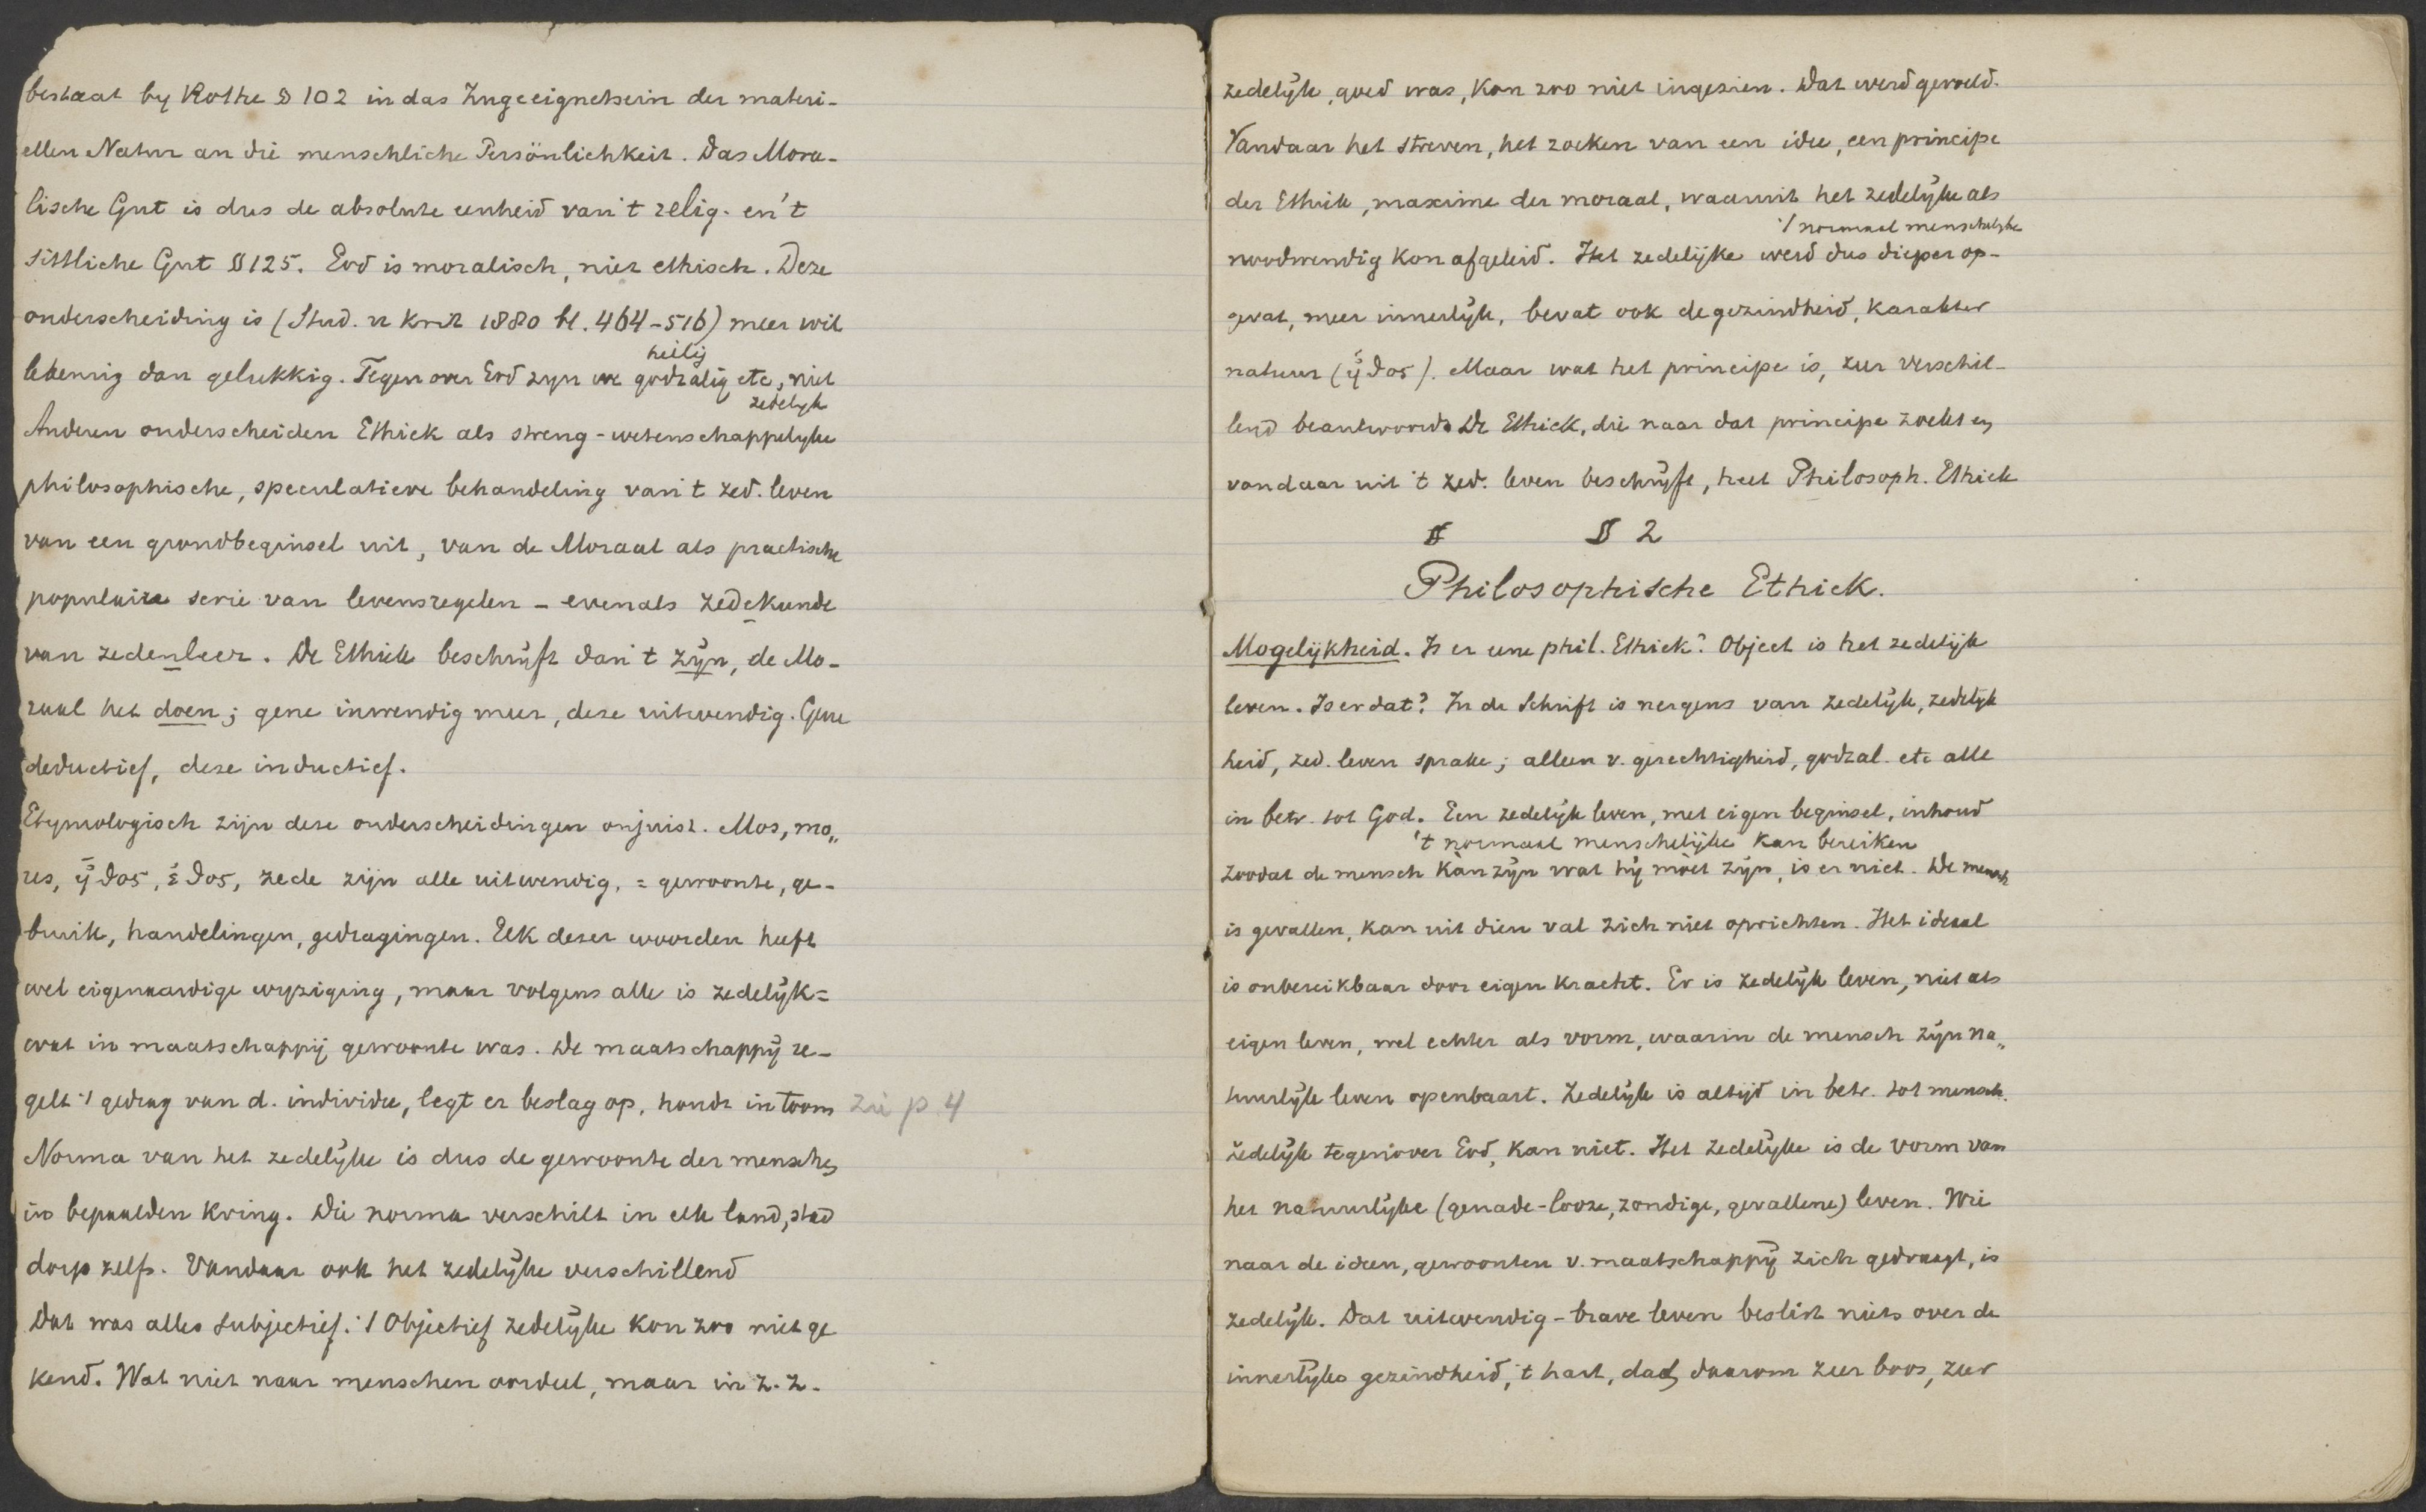 bestaat by Rothe § 102 in das Zugeeignetsein der materi-
ellen Natur an die menschliche Persönlichkeit. Das Mora-
lische Gut is dus de absolute eenheid van 't relig. en 't
sittliche Gut § 125. God is moralisch, niet ethisch. Deze
onderscheiding is (Stud. u Krit 1880 bl. 464-516) meer wil
heilig
lekeurig dan gelukkig. Tegenover God zyn we godzalig etc, niet
zedelyk
Anderen onderscheiden Ethiek als streng-wetenschappelyke
philosophische, speculatieve behandeling van 't zed. leven
van een grondbeginsel uit, van de Moraal als practische
populaire serie van levensregelen - evenals zedekunde
van zedenleer. De Ethiek beschrijft dan 't zijn, de Mo-
raal het doen; gene inwendig meer, deze uitwendig. Gene
deductief, deze inductief.
Etymologisch zijn deze onderscheidingen onjuist. Mos, mo„
res, ἦθος, ἔθος, zede zijn alle uitwendig, = gewoonte, ge-
bruik, handelingen, gedragingen. Elk dezer woorden heeft
wel eigenaardige wyziging, maar volgens alle is zedelijk =
wat in maatschappij gewoonte was. De maatschappij re-
gelt 't gedrag van d. individu, legt er beslag op, houdt in toom zie p 4
Norma van het zedelijke is dus de gewoonte der menschen
in bepaalden kring. Die norma verschilt in elk land, stad
dorp zelfs. Vandaar ook het zedelijke verschillend
Dat was alles subjectief. 't Objectief zedelijke kon zoo niet ge
kend. Wat niet naar menschen oordeel, maar in z. z.
zedelijk, goed was, kon zoo niet ingezien. Dat werd gevoeld.
Vandaar het streven, het zoeken van een idee, een principe
der Ethiek, maxime der moraal, waaruit het zedelijke als
't normaal menschelijke
noodwendig kon afgeleid. Het zedelijke werd dus dieper op-
gevat, meer innerlijk, bevat ook de gezindheid, karakter
natuur (ἦθος). Maar wat het principe is, zeer verschil-
lend beantwoord. De Ethiek, die naar dat principe zoekt en
vandaar uit 't zed. leven beschrijft, heet Philosoph. Ethiek
§ 2
Philosophische Ethiek.
Mogelijkheid. Is er eene phil. Ethiek? Object is het zedelijk
leven. Is er dat? In de Schrift is nergens van zedelijk, zedelijk
heid, zed. leven sprake; alleen v. gerechtigheid, godzal. etc alle
in betr. tot God. Een zedelijk leven, met eigen beginsel, inhoud
't normaal menschelijke kan bereiken
zoodat de mensch kàn zijn wat hij mòet zijn, is er niet. De mensch
is gevallen, kan uit dien val zich niet oprichten. Het ideaal
is onbereikbaar door eigen kracht. Er is zedelijk leven, niet als
eigen leven, wel echter als vorm, waarin de mensch zijn na„
tuurlijk leven openbaart. Zedelijk is altijd in betr. tot mensch.
Zedelijk tegenover God, kan niet. Het zedelijke is de vorm van
het natuurlijke (genade-looze, zondige, gevallene) leven. Wie
naar de ideen, gewoonten v. maatschappij zich gedraagt, is
zedelijk. Dat uitwendig-brave leven beslist niets over de
innerlijke gezindheid, 't hart, dat daarom zeer boos, zeer